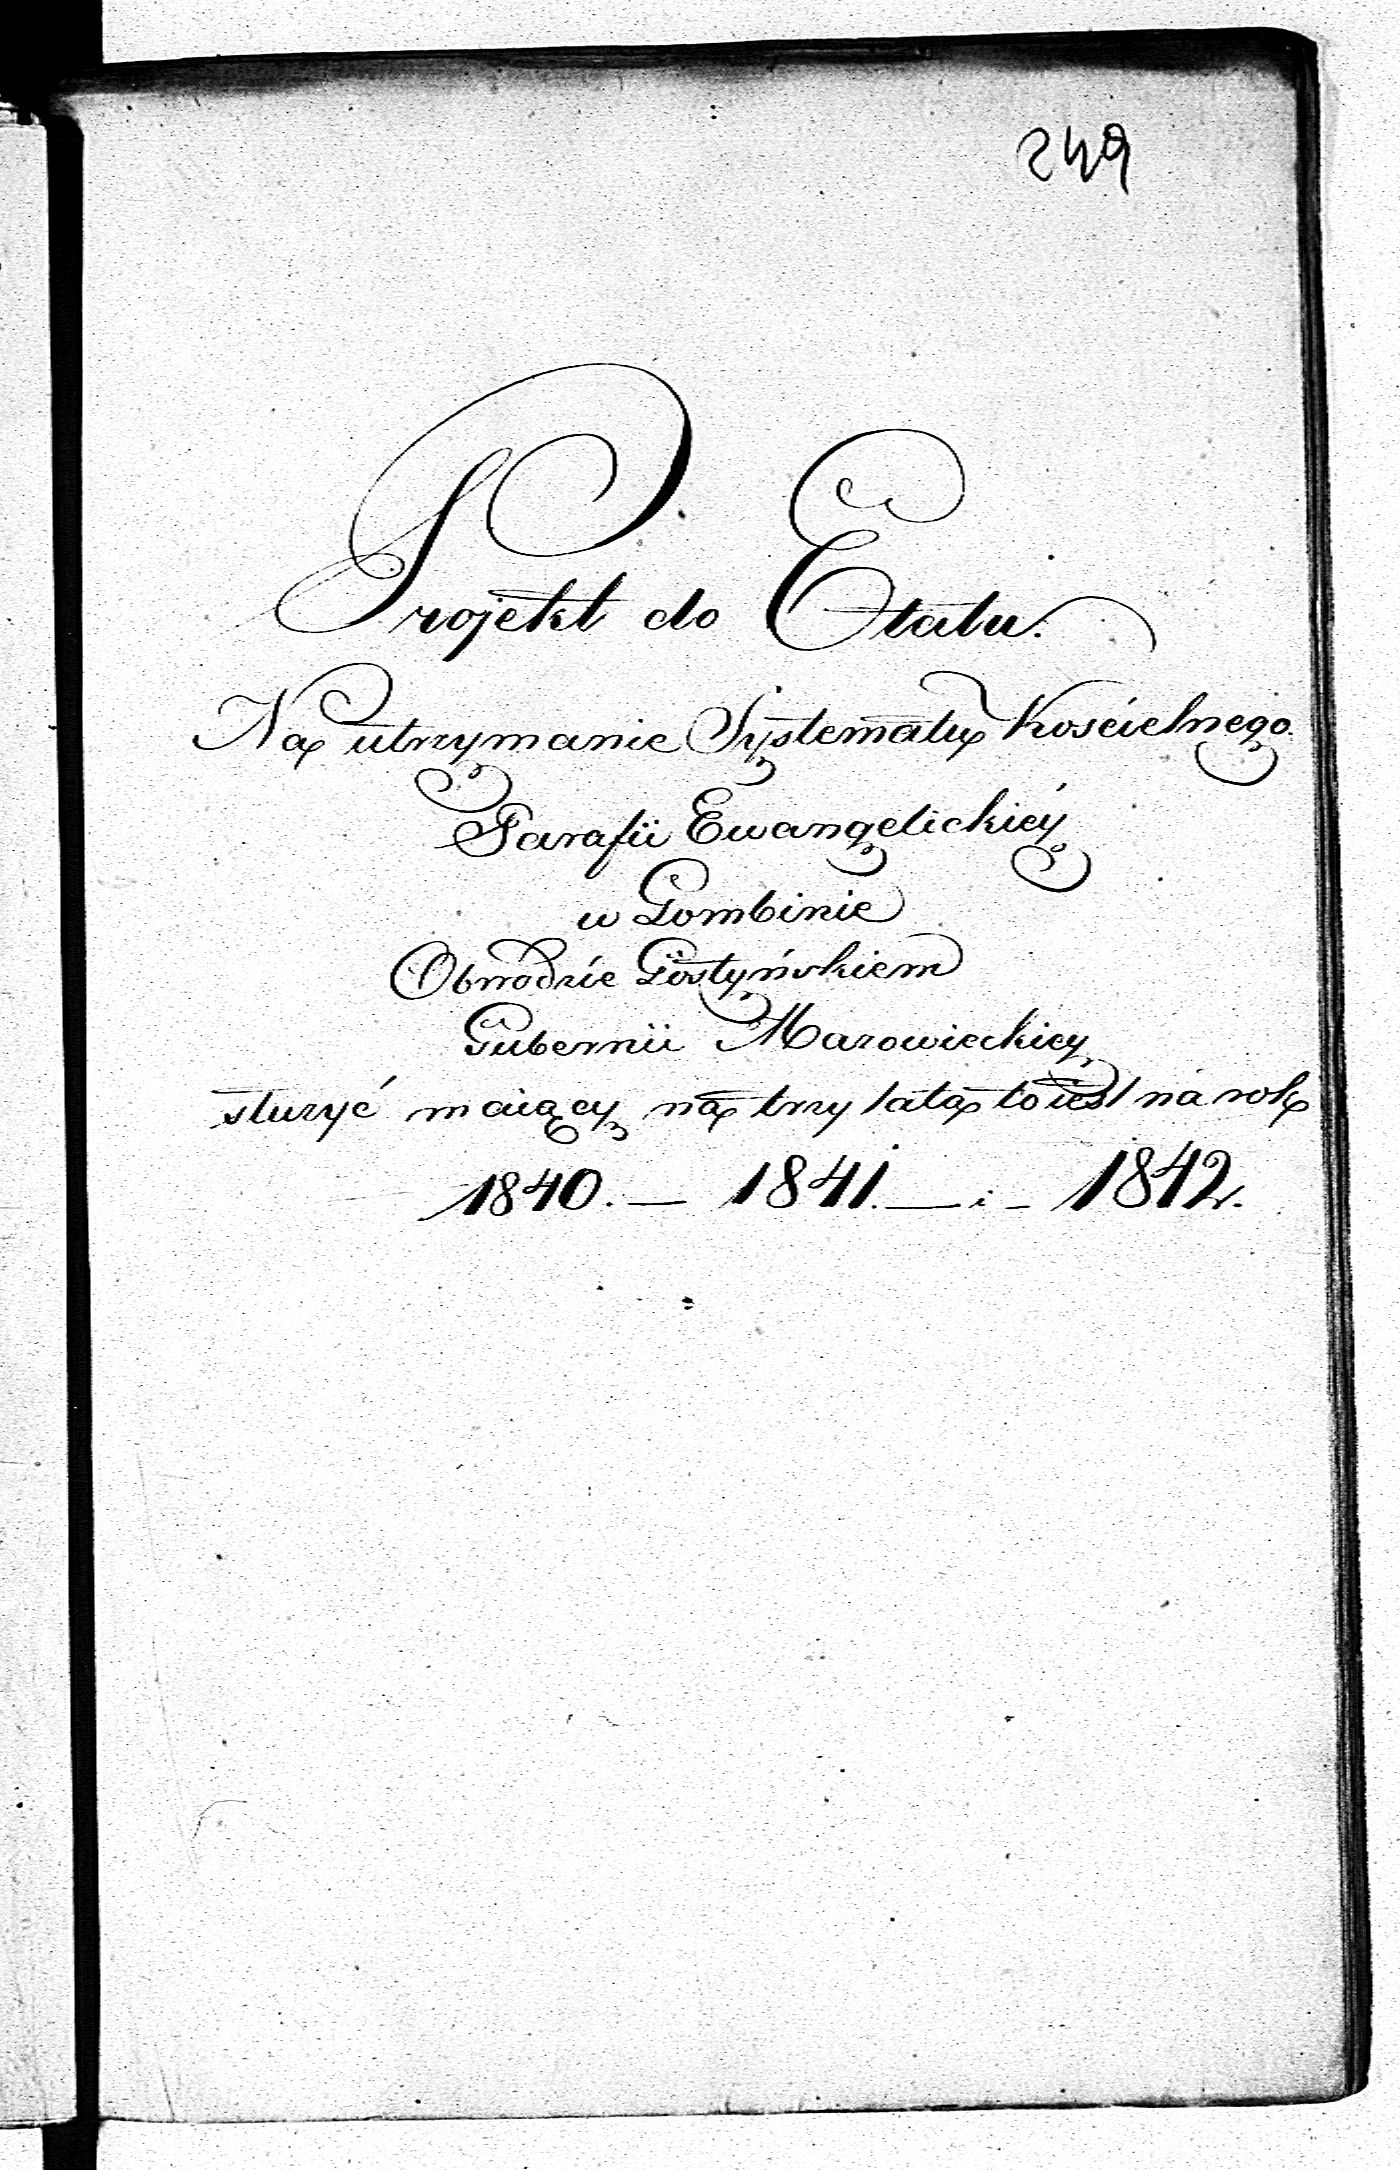 249
Projekt do Etatu.
Na utrzymanie Systematu Kościelnego.
Parafii Ewangelickiéy
w Gombinie
Obwodzie Gostyńskiem
Gubernii Mazowieckiey
służyć maiący na trzy lata to iest na rok
1840. — 1841. — i — 1842.